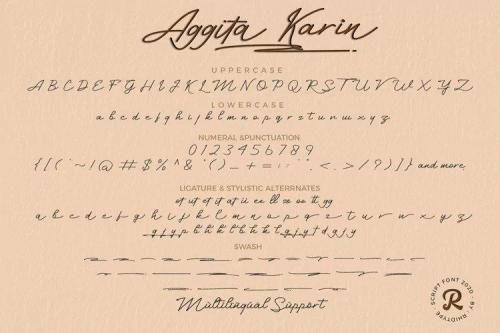 Aggita Karin
UPPERCASE
A B C D E F G H I J K L M N O P Q R S T U V W X Y Z
LOWERCASE
a b c d e f g h i j k l m n o p q r s t u v w x y z
NUMERAL &PUNCTUATION
0 1 2 3 4 5 6 7 8 9
and more
LIGATURE & STYLISTIC ALTERRNATES
a b c d e f g h i j k l m n o p q r s t u v w x y z
SWASH
Multilingual Support
SCRIPT FONT 2020 - BY RHDTYPE
R